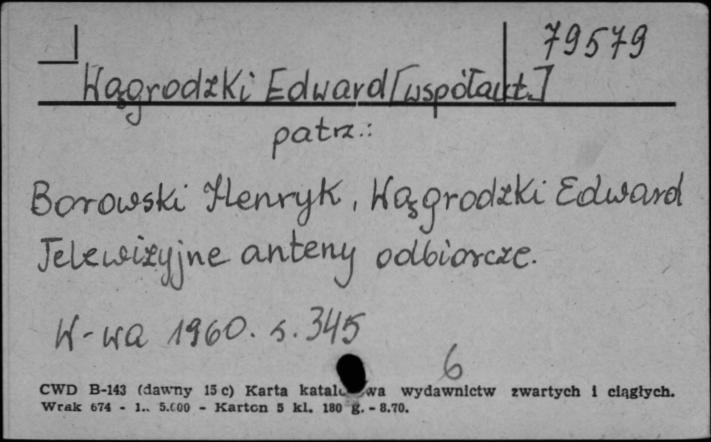 79579
Wągrodzki Edward [współaut.]
patrz.:
Borowski Henryk, Wągrodzki Edward
Telewizyjne anteny odbiorcze.
W-wa 1960. s. 345
6
CWD B-143 (dawny 15 c) Karta wydawnictw zwartych i ciągłych.
Wrak 674 - 1.. 5.000 - Karton 5 kl. 180 g. - 8.70.